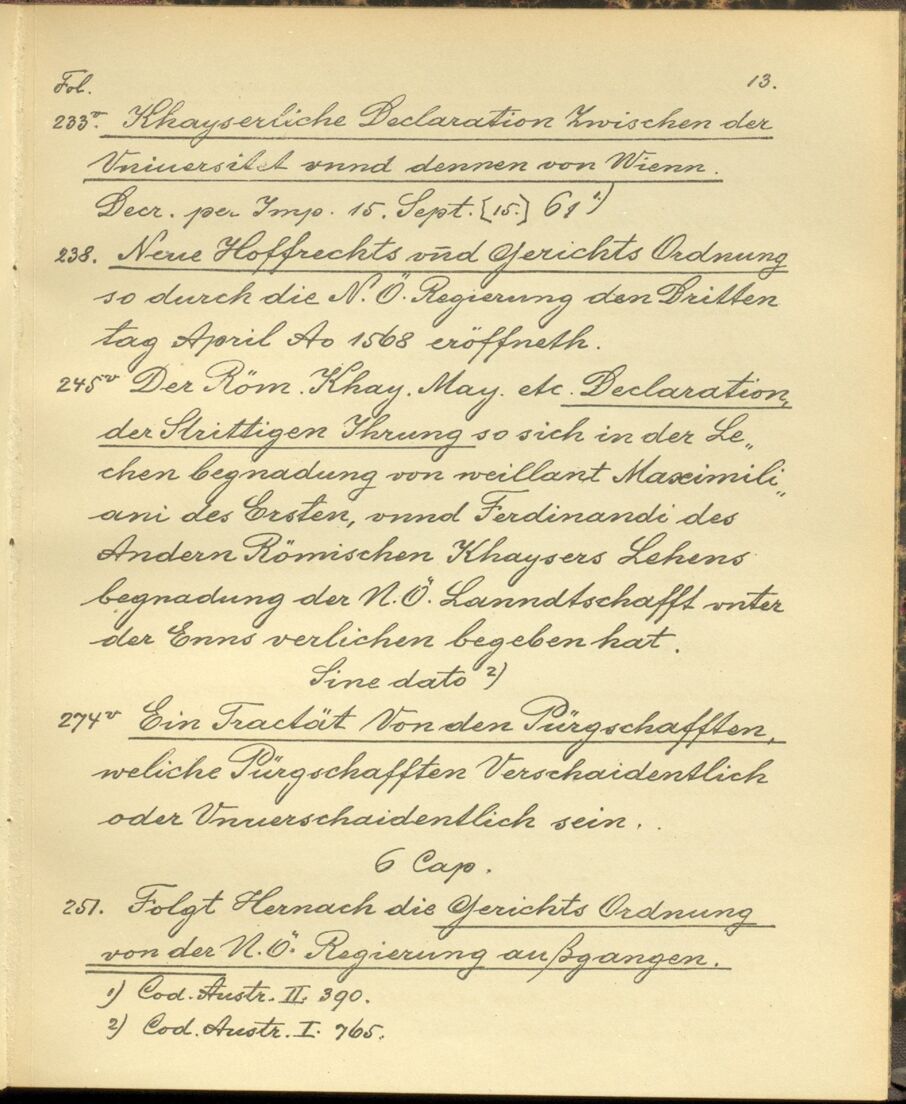 Fol. 13.
233v. Khayserliche Declaration Zwischen der
Vniuersitet vnnd dennen von Wienn.
Decr. per Imp. 15. Sept. [15.] 61 1)
238. Neue Hoffrechts vn̄d Gerichts Ordnung
so durch die N. Ö. Regierung den Dritten
tag April Ao 1568 eröffneth.
245v Der Röm. Khay. May. etc. Declaration,
der Strittigen Ihrung so sich in der Le„
chen begnadung von weillant Maximili„
ani des Ersten, vnnd Ferdinandi des
Andern Römischen Khaysers Lehens
begnadung der N. Ö. Lanndtschafft vnter
der Enns verlichen begeben hat.
Sine dato 2)
274v Ein Tractät Von den Pürgschafften,
weliche Pürgschafften Verschaidentlich
oder Vnuerschaidentlich sein.
6 Cap.
251. Folgt Hernach die Gerichts Ordnung
von der N. Ö. Regierung außgangen.
1) Cod. Austr. II. 390.
2) Cod. Austr. I. 765.